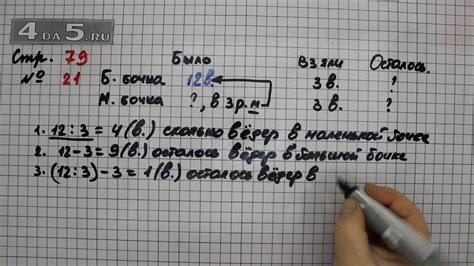 4DA5.RU
Стр. 79
Было Взяли Осталось
№ 21 Б. бочка 12в. 3в. ?
М. бочка ?, в 3 р. м 3в. ?
1. 12 : 3 = 4 (в.) сколько вёдер в маленькой бочке
2. 12 - 3 = 9 (в.) осталось вёдер в большой бочке
3. (12 : 3) - 3 = 1 (в.) осталось вёдер в